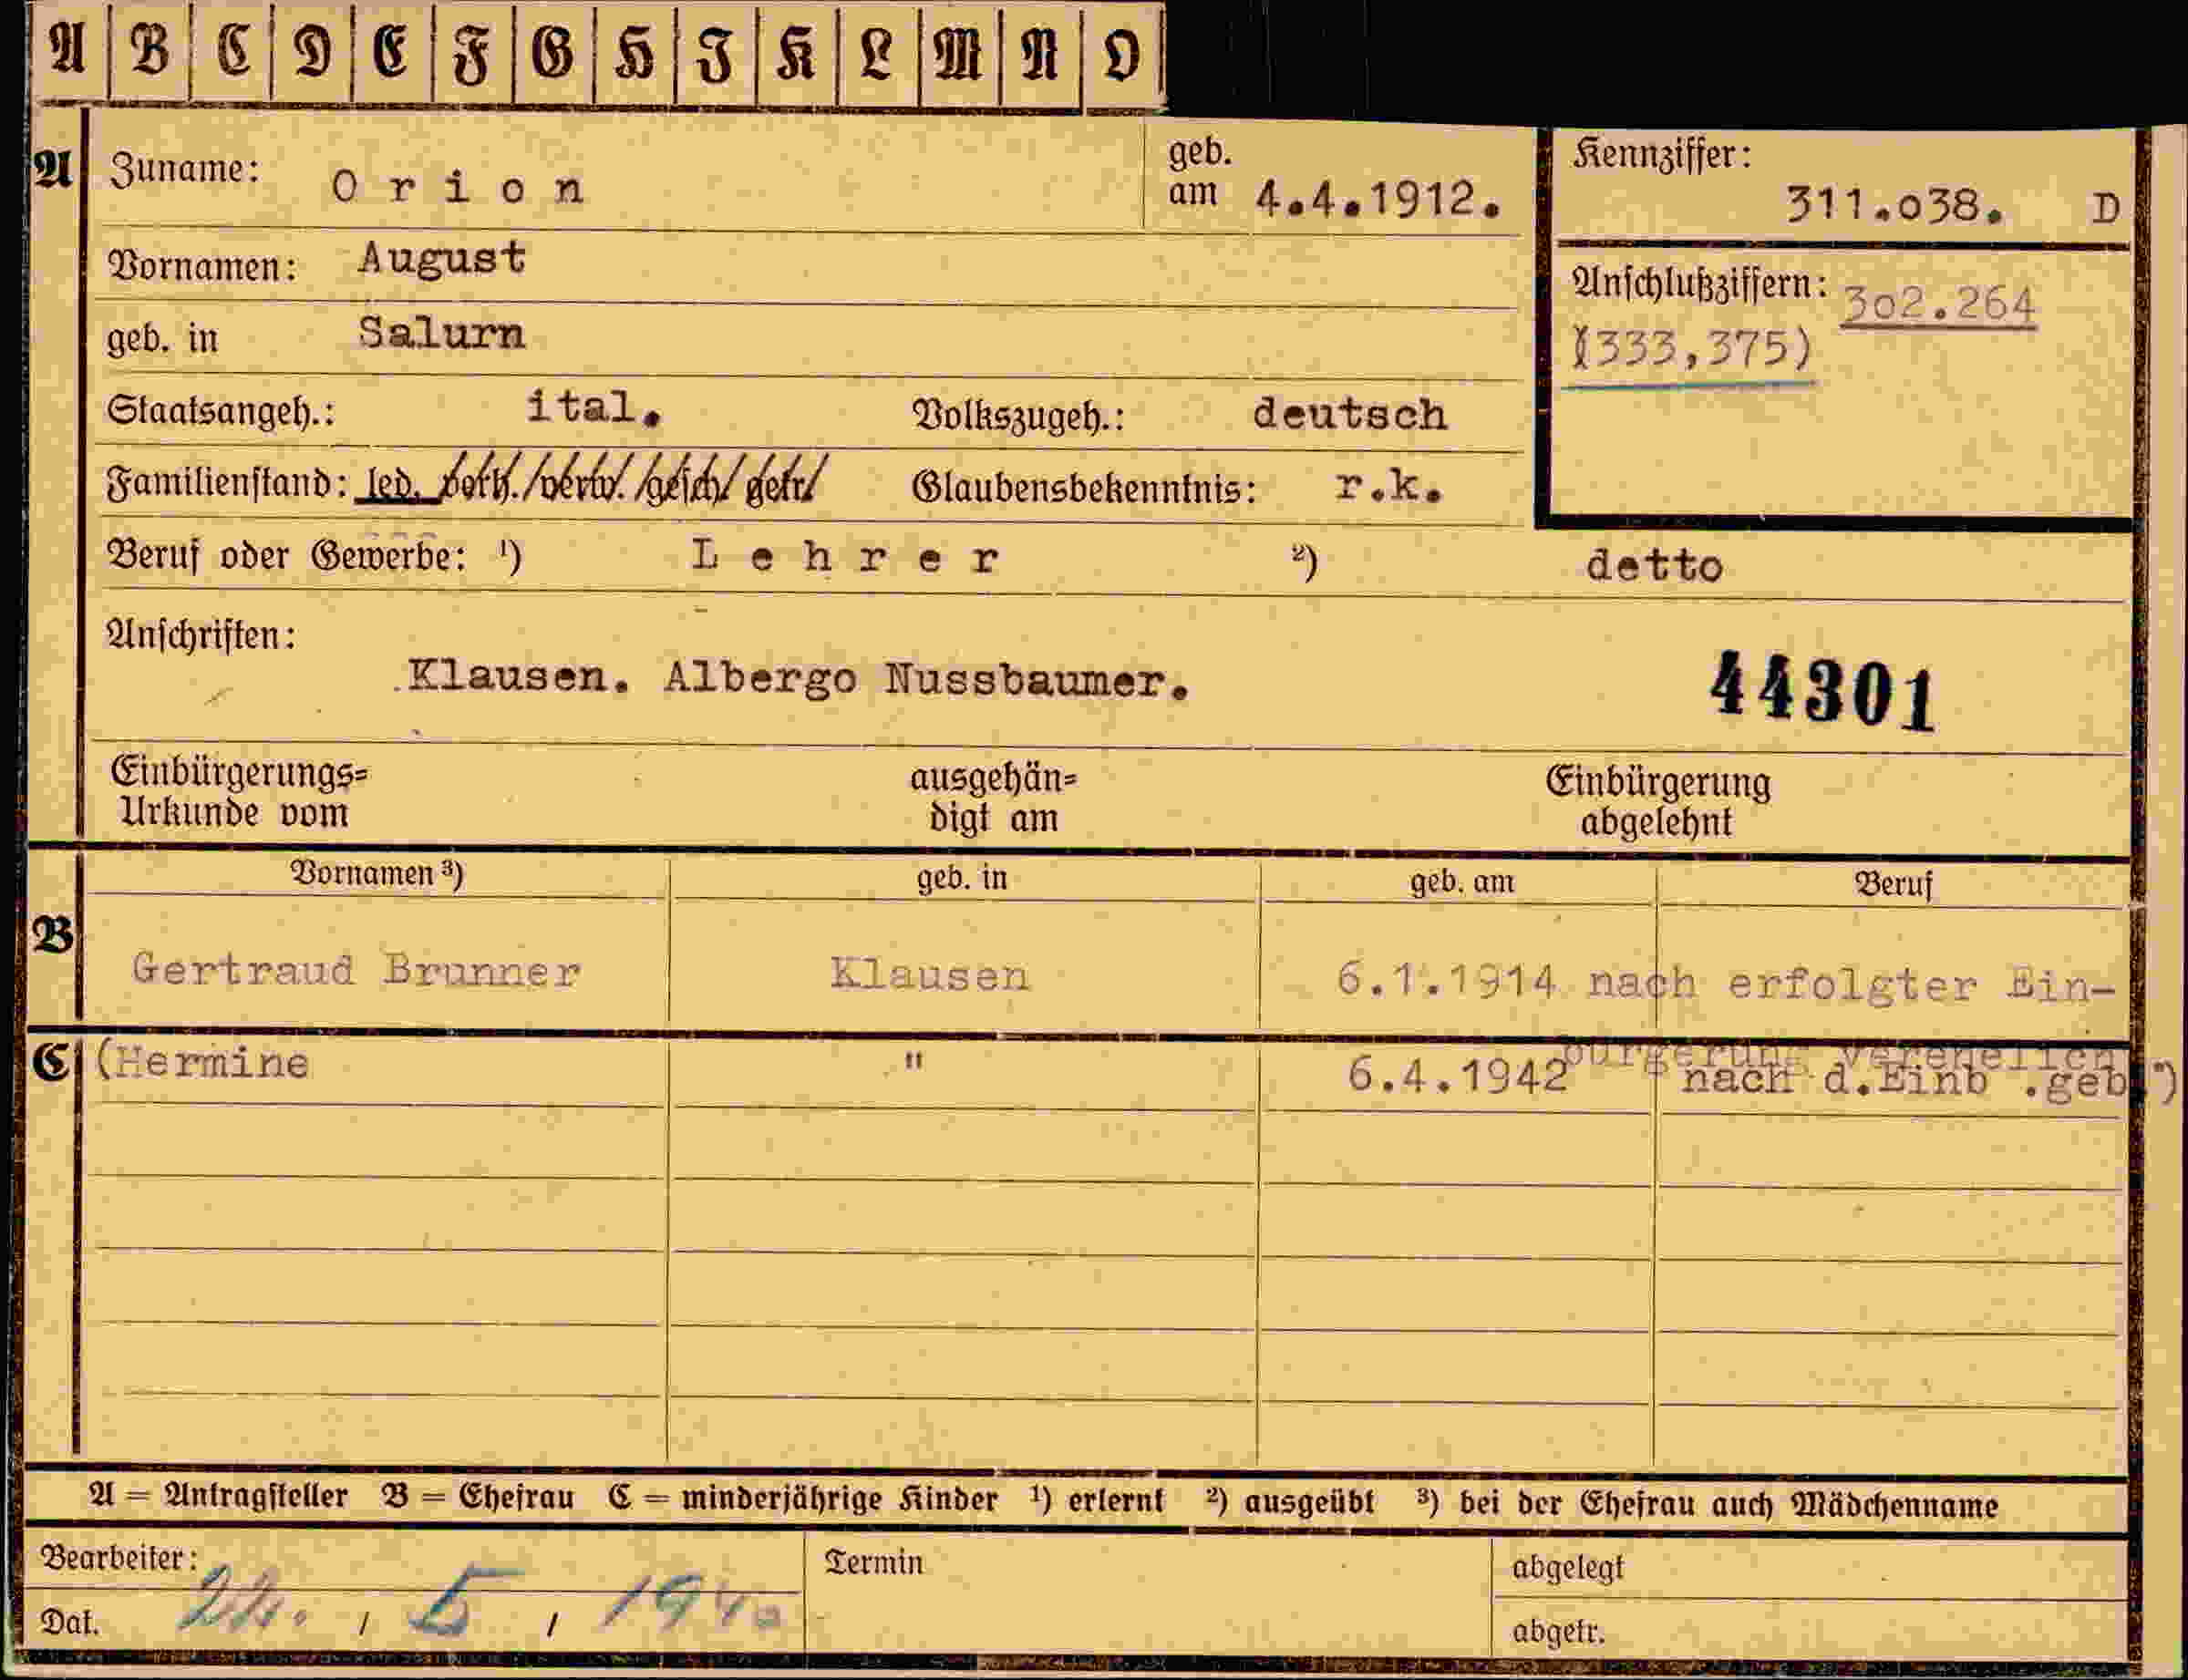 A B C D E F G H I K L M N O
A Zuname: Orion geb. am 4.4.1912. Kennziffer: 311.o38. D
Vornamen: August
Anschlußziffern: 3o2.264
(333,375)
geb. in Salurn
Staatsangeh.: ital. Volkszugeh.: deutsch
Familienstand: led. verh./verw./gesch/getr/ Glaubensbekenntnis: r.k.
Beruf oder Gewerbe: ¹) Lehrer ²) detto
Anschriften:
Klausen. Albergo Nussbaumer. 44301
Einbürgerungs= ausgehän= Einbürgerung
Urkunde vom digt am abgelehnt
Vornamen ³) geb. in geb. am Beruf
B Gertraud Brunner Klausen 6.1.1914 nach erfolgter Ein-
bürgerung verehelich
C (Hermine " 6.4.1942 nach d.Einb .geb.")
A = Antragsteller B = Ehefrau C = minderjährige Kinder ¹) erlernt ²) ausgeübt ³) bei der Ehefrau auch Mädchenname
Bearbeiter: Termin abgelegt
Dat. 22. / 5 / 1940 abgetr.